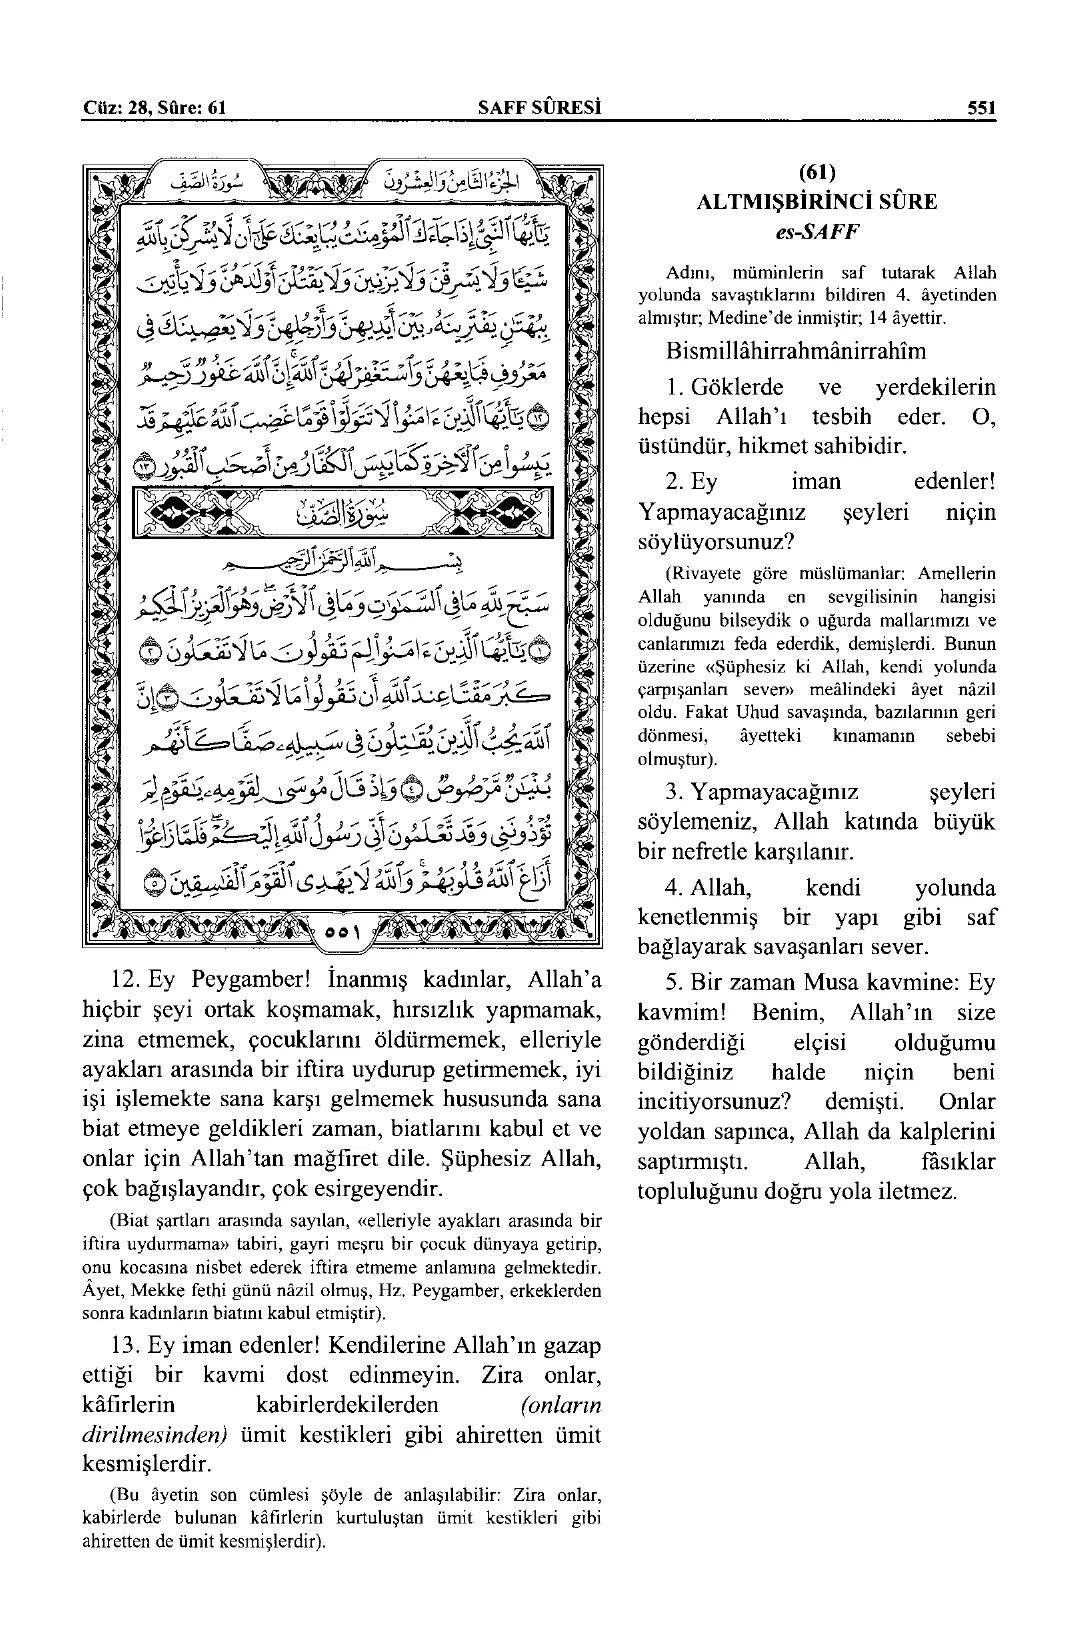 Cüz: 28, Sûre: 61 SAFF SÛRESİ 551
الجزء الثامن والعشرون سورة الصف
يَٰٓأَيُّهَا ٱلنَّبِيُّ إِذَا جَآءَكَ ٱلْمُؤْمِنَٰتُ يُبَايِعْنَكَ عَلَىٰٓ أَن لَّا يُشْرِكْنَ بِٱللَّهِ
شَيْـًٔا وَلَا يَسْرِقْنَ وَلَا يَزْنِينَ وَلَا يَقْتُلْنَ أَوْلَٰدَهُنَّ وَلَا يَأْتِينَ
بِبُهْتَٰنٍ يَفْتَرِينَهُۥ بَيْنَ أَيْدِيهِنَّ وَأَرْجُلِهِنَّ وَلَا يَعْصِينَكَ فِى
مَعْرُوفٍ فَبَايِعْهُنَّ وَٱسْتَغْفِرْ لَهُنَّ ٱللَّهَ إِنَّ ٱللَّهَ غَفُورٌ رَّحِيمٌ
١٢ يَٰٓأَيُّهَا ٱلَّذِينَ ءَامَنُوا۟ لَا تَتَوَلَّوْا۟ قَوْمًا غَضِبَ ٱللَّهُ عَلَيْهِمْ قَدْ
يَئِسُوا۟ مِنَ ٱلْءَاخِرَةِ كَمَا يَئِسَ ٱلْكُفَّارُ مِنْ أَصْحَٰبِ ٱلْقُبُورِ ١٣
سُورَةُ الصَّفِّ
بِسْمِ ٱللَّهِ ٱلرَّحْمَٰنِ ٱلرَّحِيمِ
سَبَّحَ لِلَّهِ مَا فِى ٱلسَّمَٰوَٰتِ وَمَا فِى ٱلْأَرْضِ وَهُوَ ٱلْعَزِيزُ ٱلْحَكِيمُ
١ يَٰٓأَيُّهَا ٱلَّذِينَ ءَامَنُوا۟ لِمَ تَقُولُونَ مَا لَا تَفْعَلُونَ ٢
كَبُرَ مَقْتًا عِندَ ٱللَّهِ أَن تَقُولُوا۟ مَا لَا تَفْعَلُونَ ٣ إِنَّ
ٱللَّهَ يُحِبُّ ٱلَّذِينَ يُقَٰتِلُونَ فِى سَبِيلِهِۦ صَفًّا كَأَنَّهُم
بُنْيَٰنٌ مَّرْصُوصٌ ٤ وَإِذْ قَالَ مُوسَىٰ لِقَوْمِهِۦ يَٰقَوْمِ لِمَ
تُؤْذُونَنِى وَقَد تَّعْلَمُونَ أَنِّى رَسُولُ ٱللَّهِ إِلَيْكُمْ فَلَمَّا زَاغُوٓا۟
أَزَاغَ ٱللَّهُ قُلُوبَهُمْ وَٱللَّهُ لَا يَهْدِى ٱلْقَوْمَ ٱلْفَٰسِقِينَ ٥
٥٥١
12. Ey Peygamber! İnanmış kadınlar, Allah’a
hiçbir şeyi ortak koşmamak, hırsızlık yapmamak,
zina etmemek, çocuklarını öldürmemek, elleriyle
ayakları arasında bir iftira uydurup getirmemek, iyi
işi işlemekte sana karşı gelmemek hususunda sana
biat etmeye geldikleri zaman, biatlarını kabul et ve
onlar için Allah’tan mağfiret dile. Şüphesiz Allah,
çok bağışlayandır, çok esirgeyendir.
(Biat şartları arasında sayılan, «elleriyle ayakları arasında bir
iftira uydurmama» tabiri, gayri meşru bir çocuk dünyaya getirip,
onu kocasına nisbet ederek iftira etmeme anlamına gelmektedir.
Âyet, Mekke fethi günü nâzil olmuş, Hz. Peygamber, erkeklerden
sonra kadınların biatını kabul etmiştir).
13. Ey iman edenler! Kendilerine Allah’ın gazap
ettiği bir kavmi dost edinmeyin. Zira onlar,
kâfirlerin kabirlerdekilerden (onların
dirilmesinden) ümit kestikleri gibi ahiretten ümit
kesmişlerdir.
(Bu âyetin son cümlesi şöyle de anlaşılabilir: Zira onlar,
kabirlerde bulunan kâfirlerin kurtuluştan ümit kestikleri gibi
ahiretten de ümit kesmişlerdir).
(61)
ALTMIŞBİRİNCİ SÛRE
es-SAFF
Adını, müminlerin saf tutarak Allah
yolunda savaştıklarını bildiren 4. âyetinden
almıştır; Medine’de inmiştir; 14 âyettir.
Bismillâhirrahmânirrahîm
1. Göklerde ve yerdekilerin
hepsi Allah’ı tesbih eder. O,
üstündür, hikmet sahibidir.
2. Ey iman edenler!
Yapmayacağınız şeyleri niçin
söylüyorsunuz?
(Rivayete göre müslümanlar: Amellerin
Allah yanında en sevgilisinin hangisi
olduğunu bilseydik o uğurda mallarımızı ve
canlarımızı feda ederdik, demişlerdi. Bunun
üzerine «Şüphesiz ki Allah, kendi yolunda
çarpışanları sever» meâlindeki âyet nâzil
oldu. Fakat Uhud savaşında, bazılarının geri
dönmesi, âyetteki kınamanın sebebi
olmuştur).
3. Yapmayacağınız şeyleri
söylemeniz, Allah katında büyük
bir nefretle karşılanır.
4. Allah, kendi yolunda
kenetlenmiş bir yapı gibi saf
bağlayarak savaşanları sever.
5. Bir zaman Musa kavmine: Ey
kavmim! Benim, Allah’ın size
gönderdiği elçisi olduğumu
bildiğiniz halde niçin beni
incitiyorsunuz? demişti. Onlar
yoldan sapınca, Allah da kalplerini
saptırmıştı. Allah, fâsıklar
topluluğunu doğru yola iletmez.